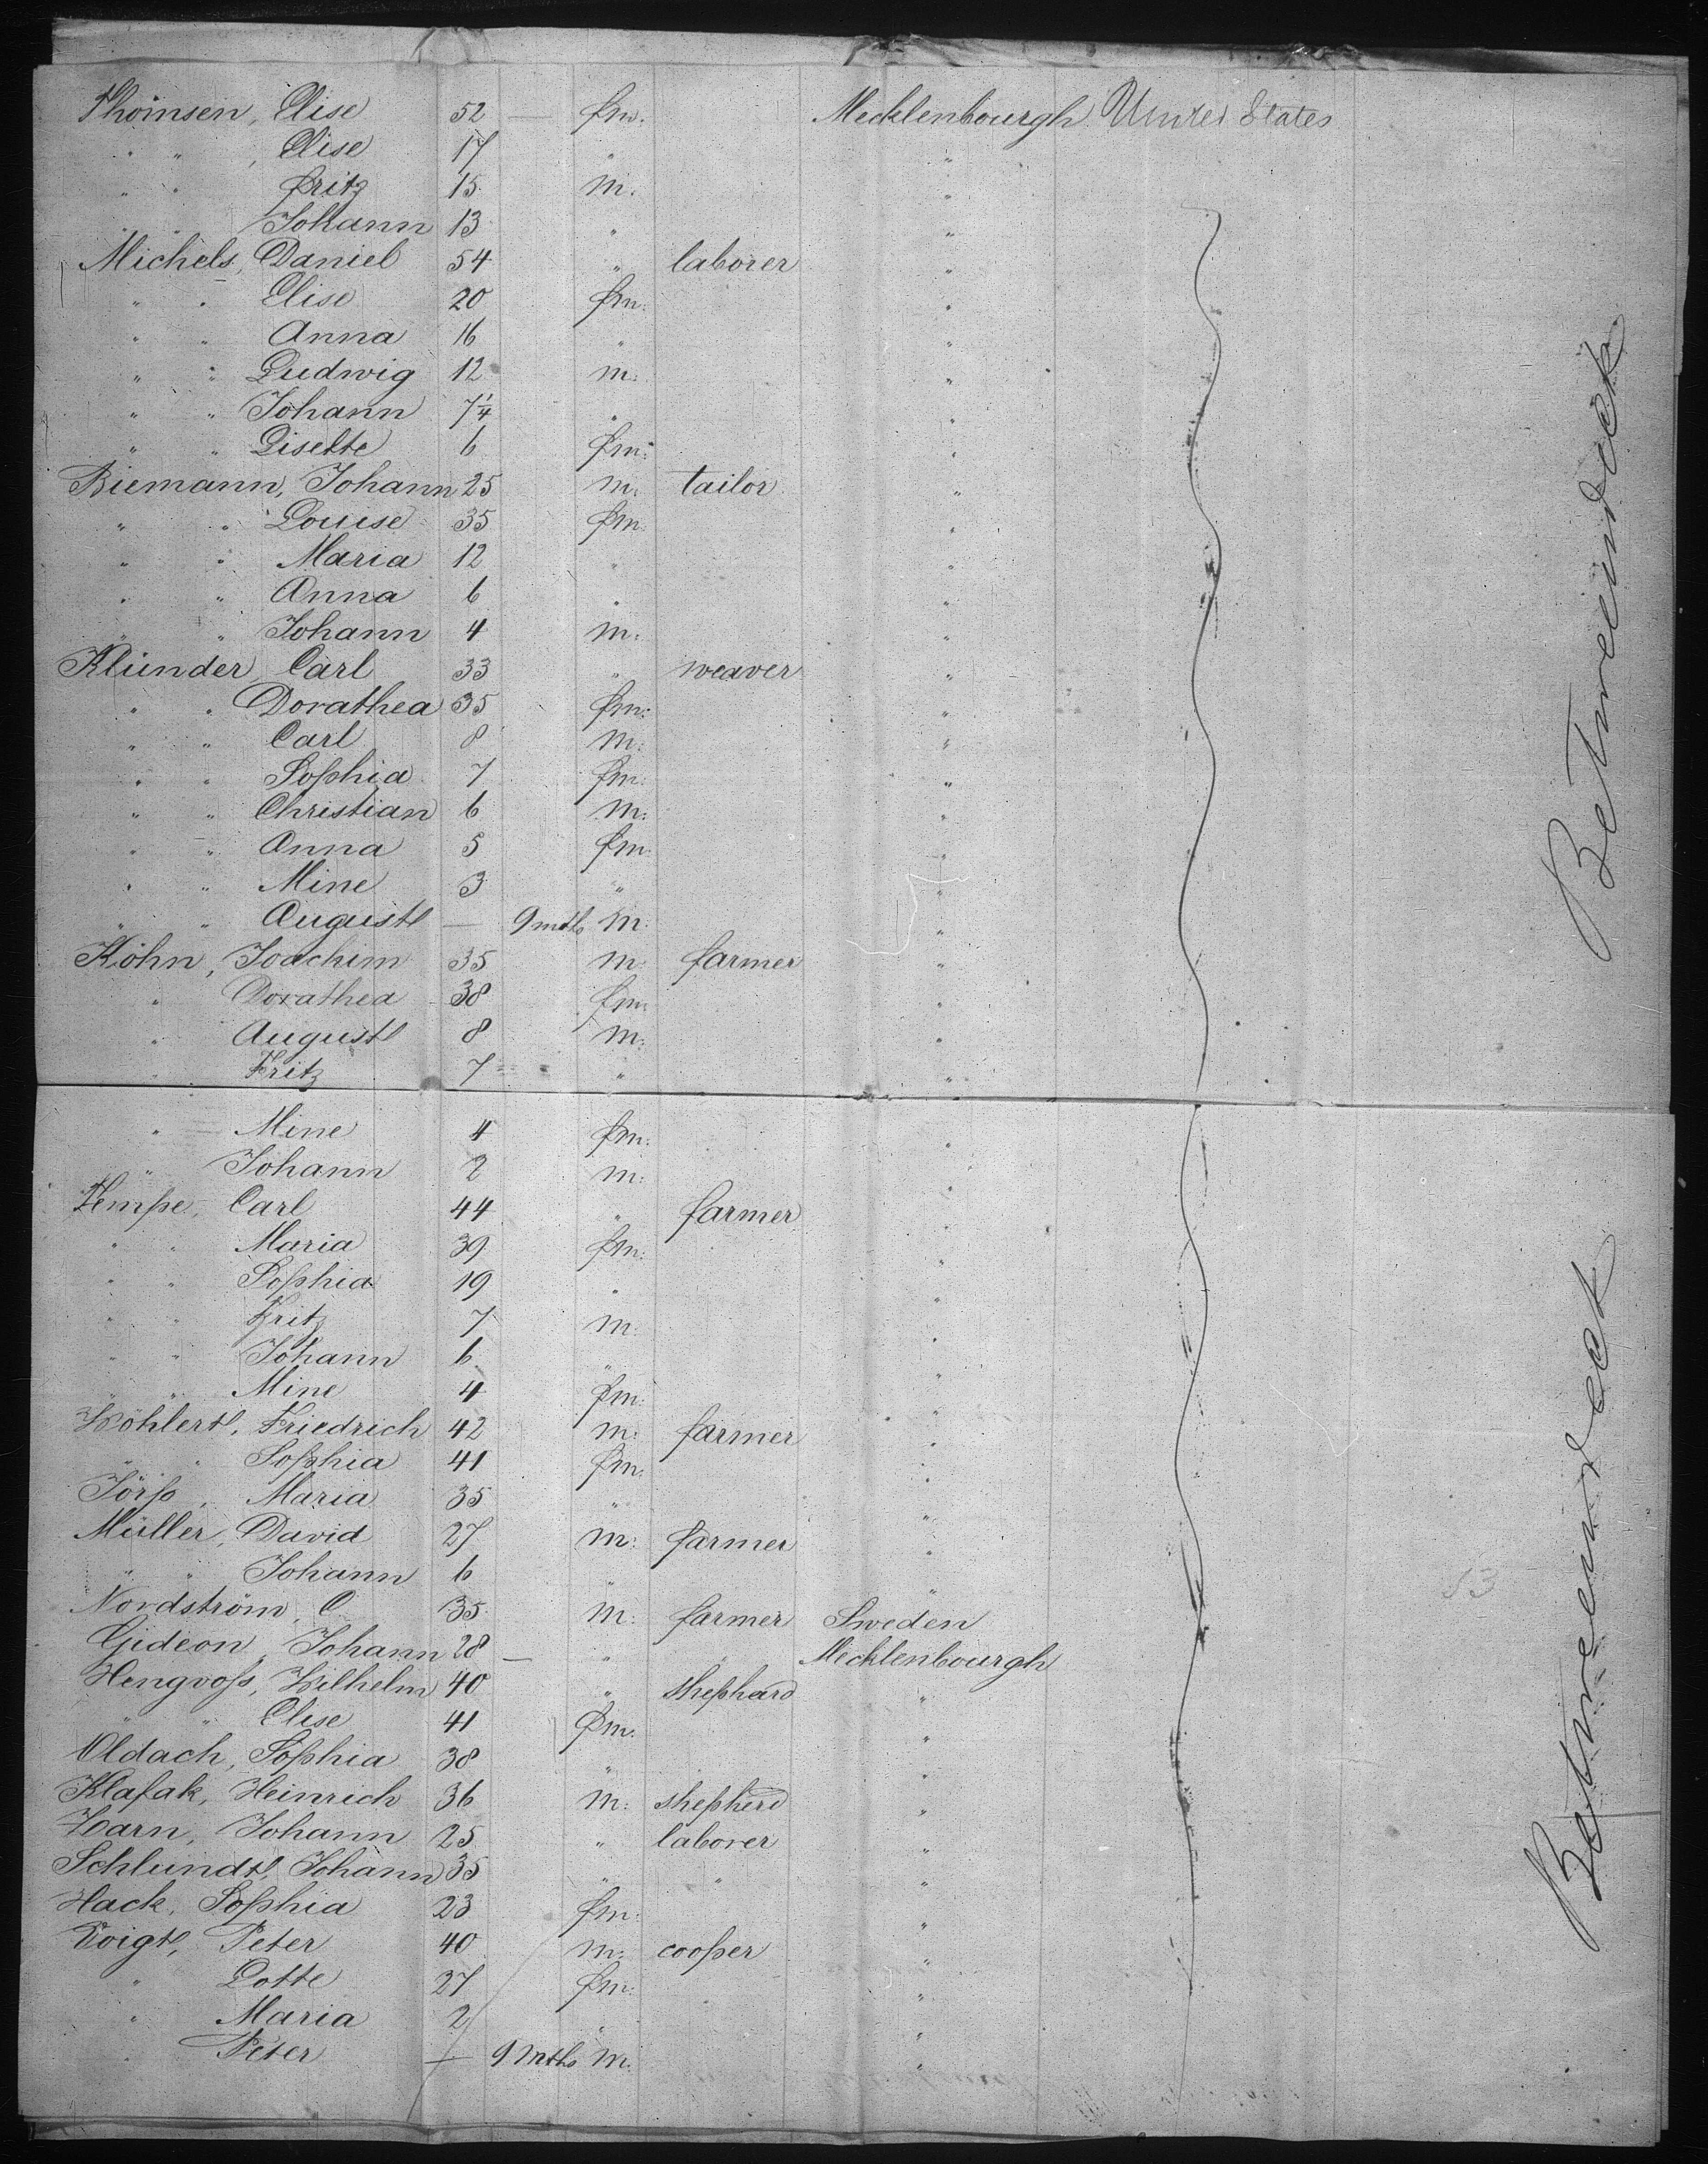 Thomsen, Elise 52 — fm. Mecklenbourgh United States
" " , Elise 17 " "
" " Fritz 15 m. "
" " Johann 13 " "
Michels, Daniel 54 " laborer "
" " Elise 20 fm. "
" " Anna 16 " "
" " Ludwig 12 m. "
" " Johann 7¼ " "
" " Lisette 6 fm. "
Biemann, Johann 25 m. tailor "
" " Louise 35 fm. "
" " Maria 12 " "
" " Anna 6 " "
" " Johann 4 m. "
Klünder, Carl 33 " weaver "
" " Dorathea 35 fm. "
" " Carl 8 m. "
" " Sophia 7 fm. "
" " Christian 6 m. "
" " Anna 5 fm. "
" " Mine 3 " "
" " August — 9 mths m. "
Köhn, Joachim 35 m. farmer "
" Dorathea 38 fm. "
" August 8 m. "
" Fritz 7 " "
" Mine 4 fm. "
" Johann 2 m. "
Carl 44 " farmer "
" " Maria 39 fm. "
" " Sophia 19 " "
" " Fritz 7 m. "
" " Johann 6 " "
" " Mine 4 fm. "
Friedrich 42 m. farmer "
" " Sophia 41 fm. "
Maria 35 " "
Müller, David 27 m. farmer "
" " Johann 6 " "
Nordström, C 35 m. farmer Sweden
Gideon, Johann 28 — " " Mecklenbourgh
Hengvoss, Wilhelm 40 " shephard "
" " Elise 41 fm. "
Oldach, Sophia 38 " "
Klafak, Heinrich 36 m. shepherd "
Johann 25 " laborer "
Schlundt, Johann 35 " " "
Hack, Sophia 23 fm. "
Voigt, Peter 40 m. cooper "
" Lotte 27 fm. "
" Maria 2 " "
" Peter — 9 mths m. "
Betweendeck
Betweendeck